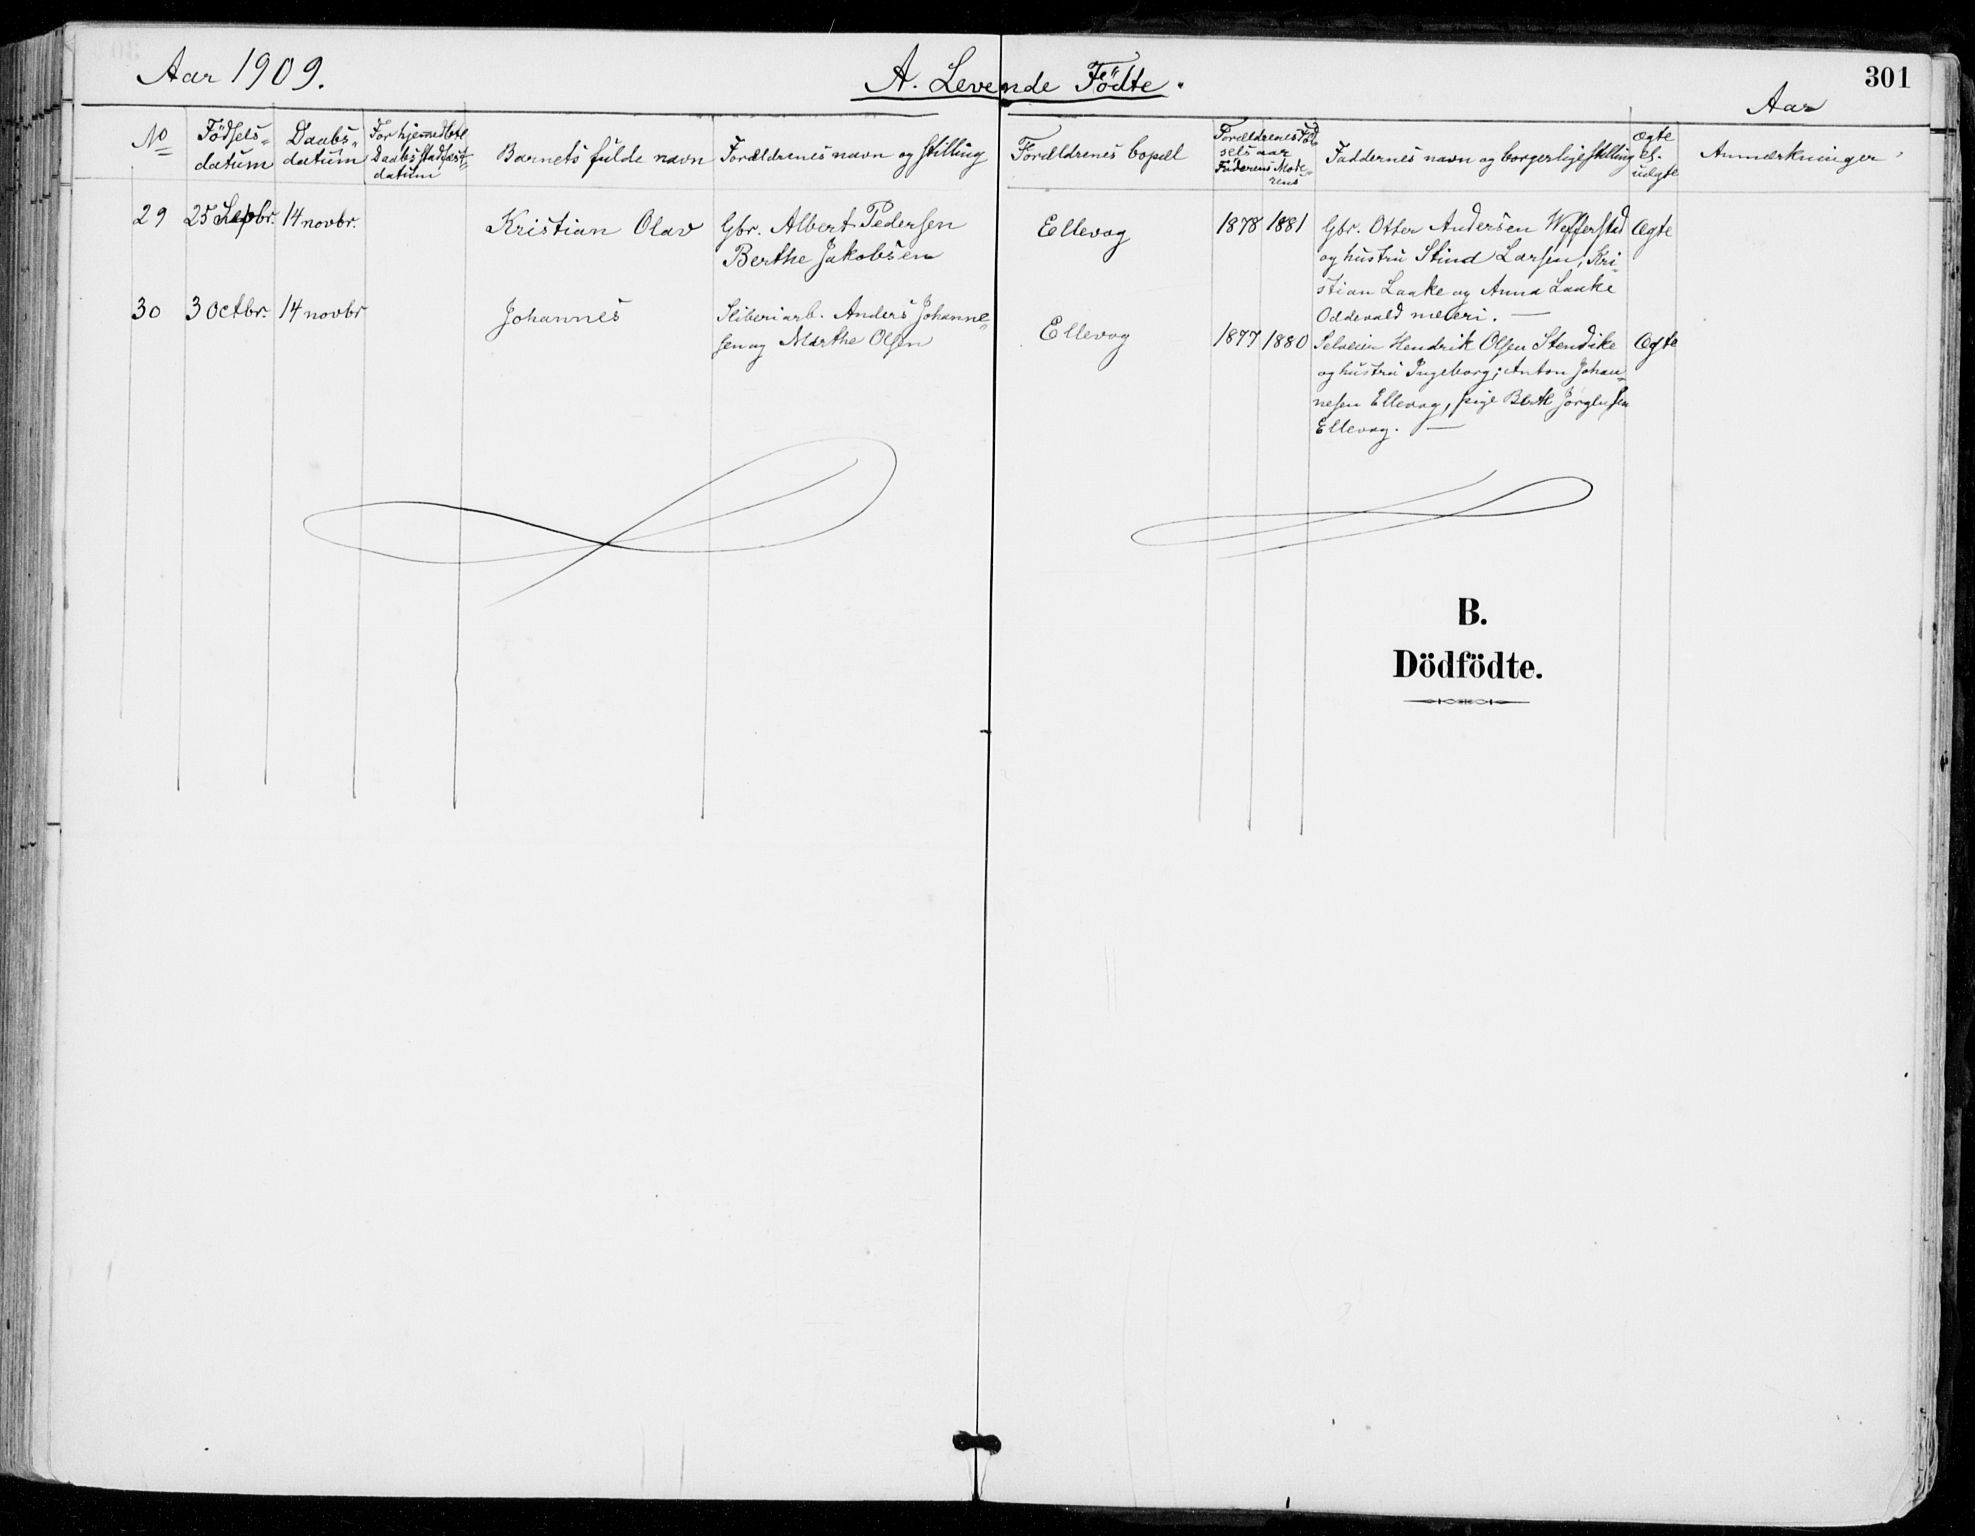 Aar 1909.
A. Levende Födte.
301
Aar
No
Födsels-
datum
Daabs-
datum
For hjemedöbte
Daabs stadfæst-
datum
Barnets fulde navn
Forældrenes navn og stilling
Forældrenes bopæl
Forældrenes Föd-
sels aar
Faderens Mode-
rens
Faddernes navn og borgerlige stilling
Ægte
el.
uægte
Anmærkninger
29 25 Sepbr. 14 novbr. Kristian Olav
Gbr. Albert Pedersen
Berthe Jakobsen
Ellevog 1878 1881
Gbr. Otter Andersen
og hustru Larsen, Kri-
stian Laake og Anna Laake
Oddevald meieri. —
Ægte
30 3 Octbr. 14 novbr Johannes
Sliberiarb. Anders Johanne-
sen og Marthe Olsen
Ellevog 1877 1880
Selveier Hendrik Olsen Stendike
og hustru Ingeborg, Anton Johan-
nesen Ellevog, pige
Ellevog. —
Ægte
B.
Dödfödte.